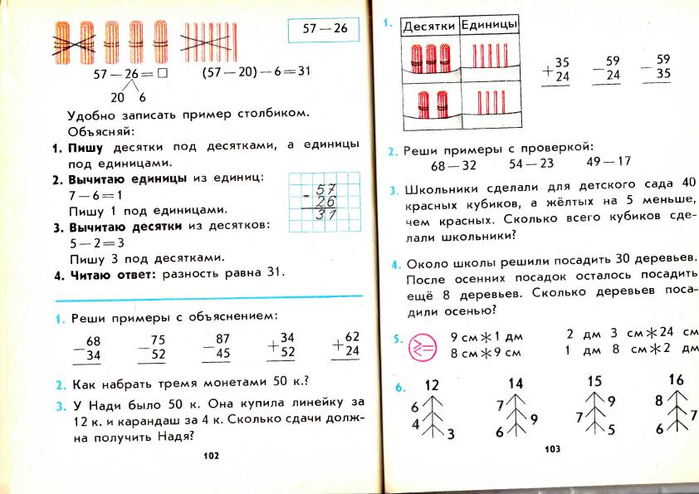 57 — 26
57 — 26 = □ (57 — 20) — 6 = 31
20 6
Удобно записать пример столбиком.
Объясняй:
1. Пишу десятки под десятками, а единицы
под единицами.
2. Вычитаю единицы из единиц:
7 — 6 = 1
Пишу 1 под единицами.
3. Вычитаю десятки из десятков:
5 — 2 = 3
Пишу 3 под десятками.
4. Читаю ответ: разность равна 31.
57
- 26
31
1. Реши примеры с объяснением:
68 75 87 34 62
— — — + +
34 52 45 52 24
2. Как набрать тремя монетами 50 к.?
3. У Нади было 50 к. Она купила линейку за
12 к. и карандаш за 4 к. Сколько сдачи долж-
на получить Надя?
102
1.
Десятки Единицы
35 59 59
+ — —
24 24 35
2. Реши примеры с проверкой:
68 — 32 54 — 23 49 — 17
3. Школьники сделали для детского сада 40
красных кубиков, а жёлтых на 5 меньше,
чем красных. Сколько всего кубиков сде-
лали школьники?
4. Около школы решили посадить 30 деревьев.
После осенних посадок осталось посадить
ещё 8 деревьев. Сколько деревьев поса-
дили осенью?
5. > < = 9 см * 1 дм 2 дм 3 см * 24 см
8 см * 9 см 1 дм 8 см * 2 дм
6. 12 14 15 16
6 7 9 8
4 9 7 7
3 6 5 6
103